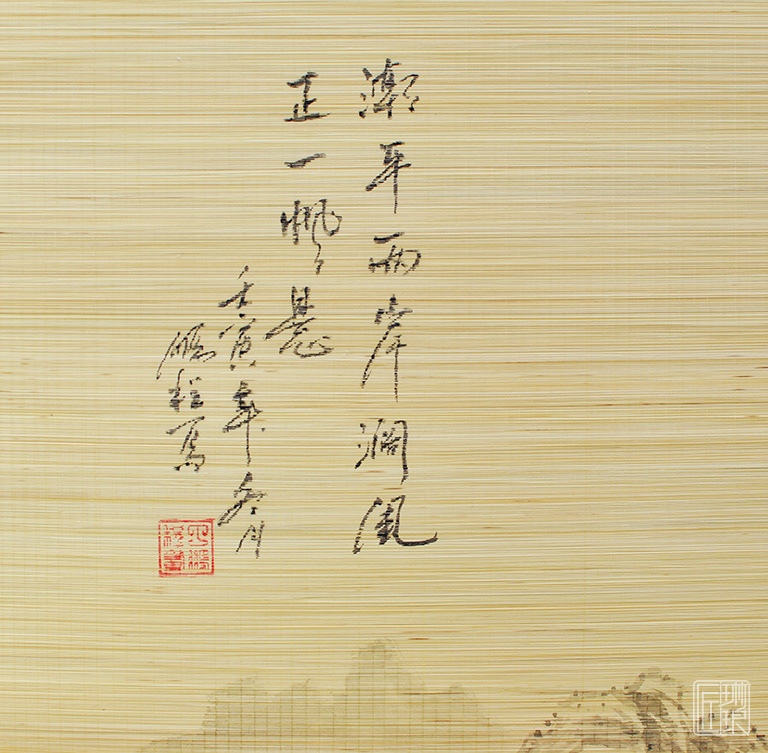 潮平两岸阔风
正一帆悬
壬寅年冬月
鹏程写